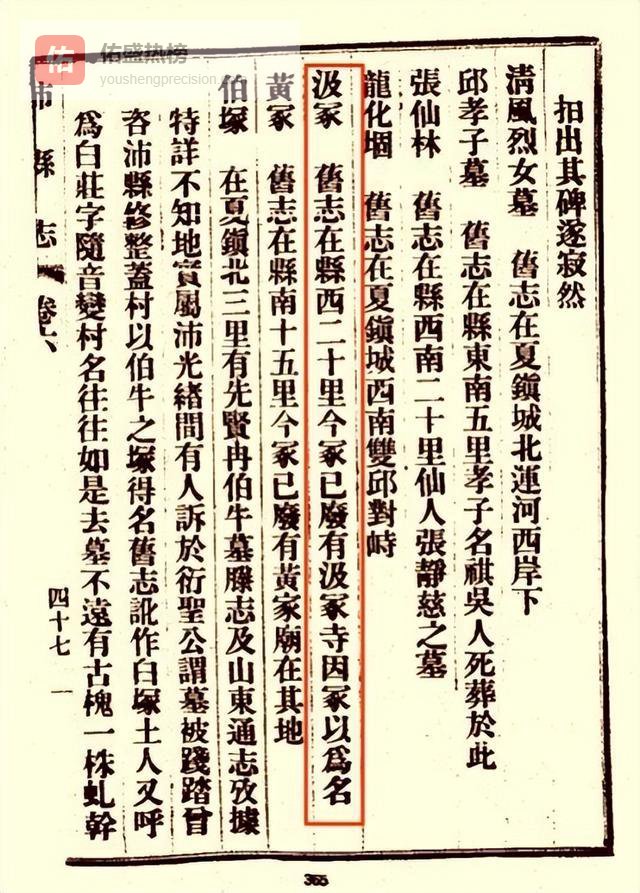 佑
佑盛热榜
youshengprecision.com
拍出其碑遂寂然
清風烈女墓　舊志在夏鎮城北運河西岸下
邱孝子墓　舊志在縣東南五里孝子名祺吳人死葬於此
張仙林　舊志在縣西南二十里仙人張靜慈之墓
龍化堌　舊志在夏鎮城西南雙邱對峙
汲冢　舊志在縣西二十里今冢已廢有汲冢寺因冢以爲名
黃冢　舊志在縣南十五里今冢已廢有黃家廟在其地
伯塚　在夏鎮北三里有先賢冉伯牛墓滕志及山東通志攷據
特詳不知地實屬沛光緒間有人訴於衍聖公謂墓被踐踏曾
咨沛縣修整蓋村以伯牛之塚得名舊志訛作白塚土人又呼
爲白莊字隨音變村名往往如是去墓不遠有古槐一株虬幹
沛縣志　卷六
四十七
365